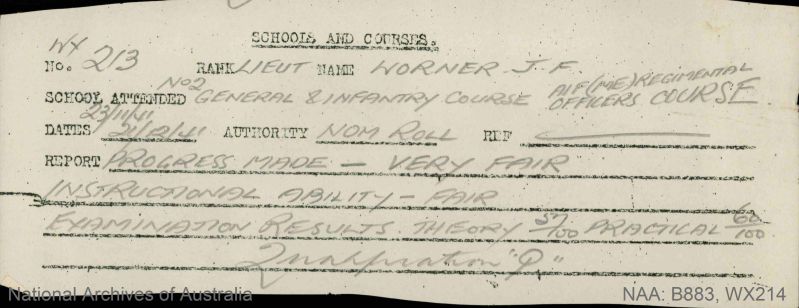 SCHOOLS AND COURSES.
WX
No. 213 RANK LIEUT NAME WORNER J. F.
SCHOOL ATTENDED No2 GENERAL & INFANTRY COURSE AIF(ME) REGIMENTAL OFFICERS COURSE
DATES 23/11/41 21/12/41 AUTHORITY NOM ROLL REF
REPORT PROGRESS MADE — VERY FAIR
INSTRUCTIONAL ABILITY - FAIR
EXAMINATION RESULTS. THEORY 57/100 PRACTICAL 60/100
Qualification "Q"
National Archives of Australia NAA: B883, WX214